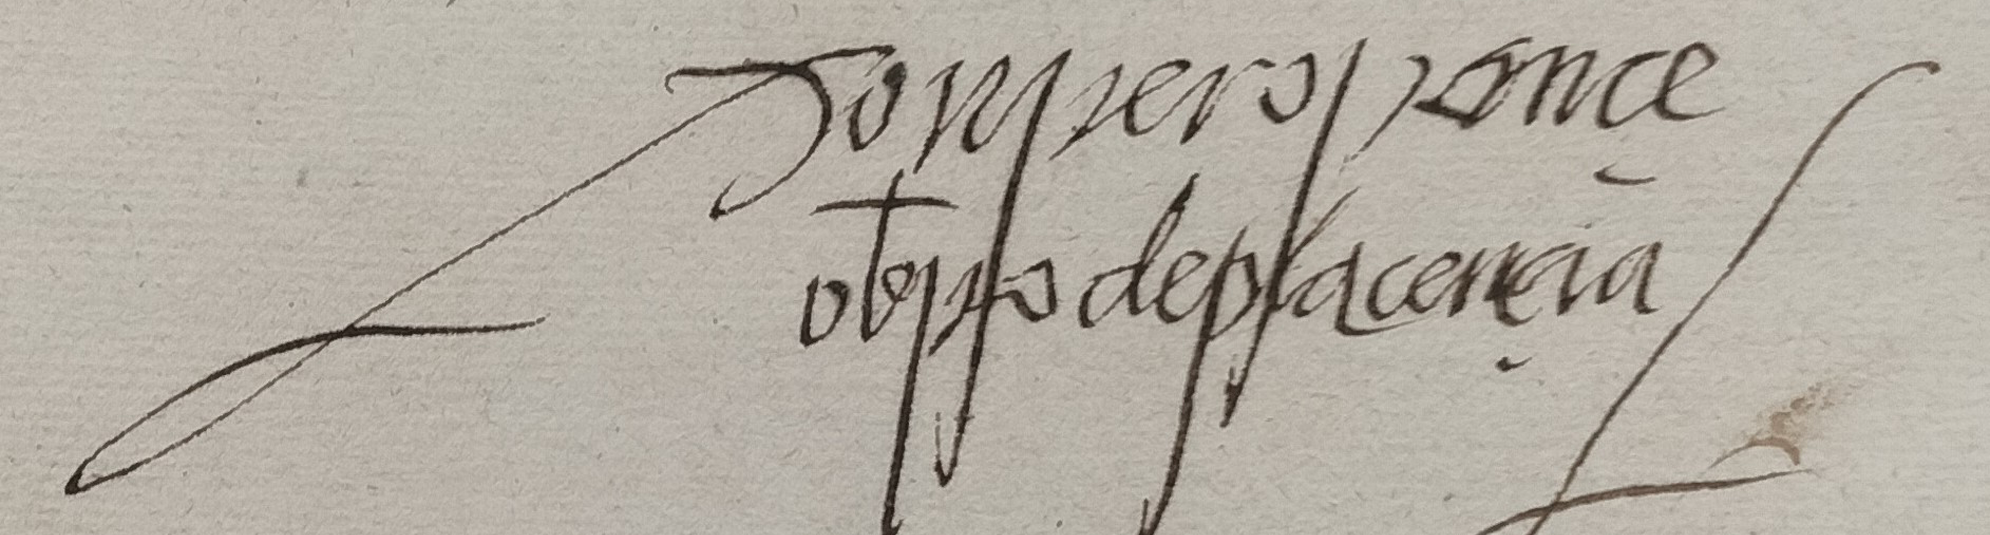 don pero ponçe
obpo de plaçençia